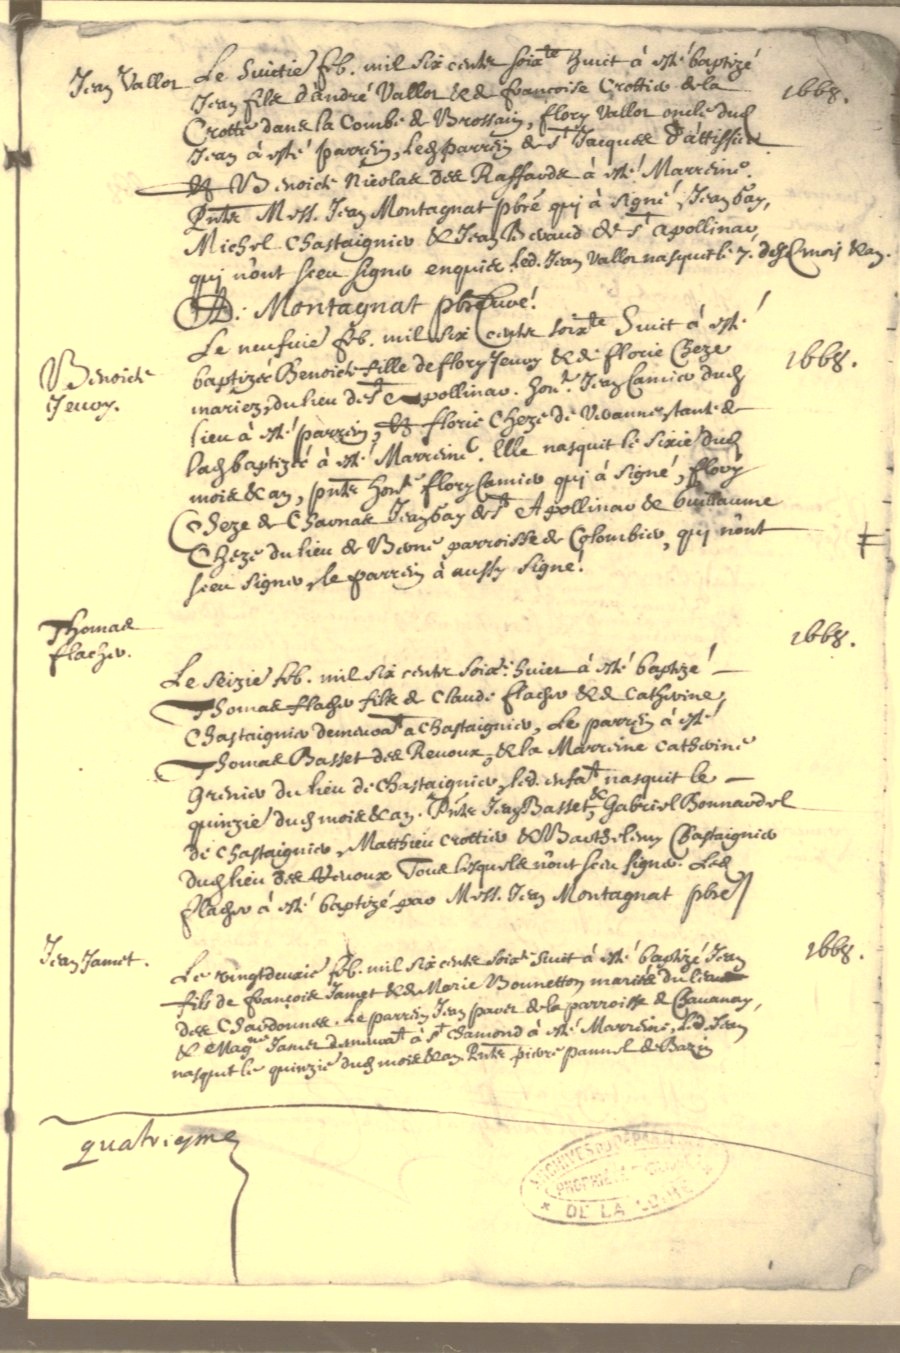 Jean Vallot
1668.
Le huictie feb. mil six cents soixte huict à esté baptizé
Jean fils d'andré Vallot & de françoise Crottier de la
Crotte dans la Combe de Brossain, flory Vallot oncle dud
Jean à esté parrein, led parrein de St Jacques d'attissieu
Et Benoiste Nicolas des Raffards à esté Marreine.
Pnts Mess. Jean Montagnat pbre qui à signé, Jean Gay,
Michel Chastaignier & Jean Beraud de St apollinar
qui n'ont sceu signer enquis. led. Jean Vallot nasquit le 7. desd mois & an.
Montagnat pbre curé.
Benoiste
Jeuoy.
1668.
Le neufuie feb. mil six cents soixte huit à esté
baptizée Benoiste fille de flory Jeuoy & de florie Cheze
mariez, du lieu de St Apollinar. honr. Jean Camier dud
lieu à esté parrein, Et florie Cheze de tante de
lad baptizée à esté Marreine. Elle nasquit le sixie dud
mois & an, pnts honr flory Camier qui à signé, flory
Cheze de Charnas Jean Gay de St Apollinar & Guillaume
Cheze du lieu de Berne parroisse de Colombier, qui n'ont
sceu signer, le parrein à aussy signé.
Thomas
flacher.
1668.
Le seizie feb. mil six cents soixte huict à esté baptizé
Thomas flacher fils de Claude flacher & de Catherine
Chastaignier demeurat a Chastaignier, Le parrein à esté
Thomas Basset des Renoux, & la Marreine Catherine
Grenier du lieu de Chastaignier, led. enfat nasquit le
quinzie dud mois & an. Pnts Jean Basset, & Gabriel Bonnardel
de Chastaignier, Matthieu Crottier & Barthelemy Chastaignier
dud lieu des Renoux Tous lesquels n'ont sceu signer. Led
flacher à esté baptizé par Mess. Jean Montagnat pbre
Jean Jamet.
1668.
Le vingtdeuxie feb. mil six cents soixte huit à esté baptizé Jean
fils de françois Jamet & de Marie Bonnetton mariés du lieu
des Chardonnes. Le parrein Jean pauet de la parroisse de Chauanay,
& Magne Jamet demeurat à St Chamond à esté Marreine, led. Jean
nasquit le quinzie dud mois & an Pnts pierre pannel de Bazin
quatriesme
ARCHIVES DÉPARTEMENTALES
PROPRIÉTÉ PUBLIQUE
* DE LA LOIRE *